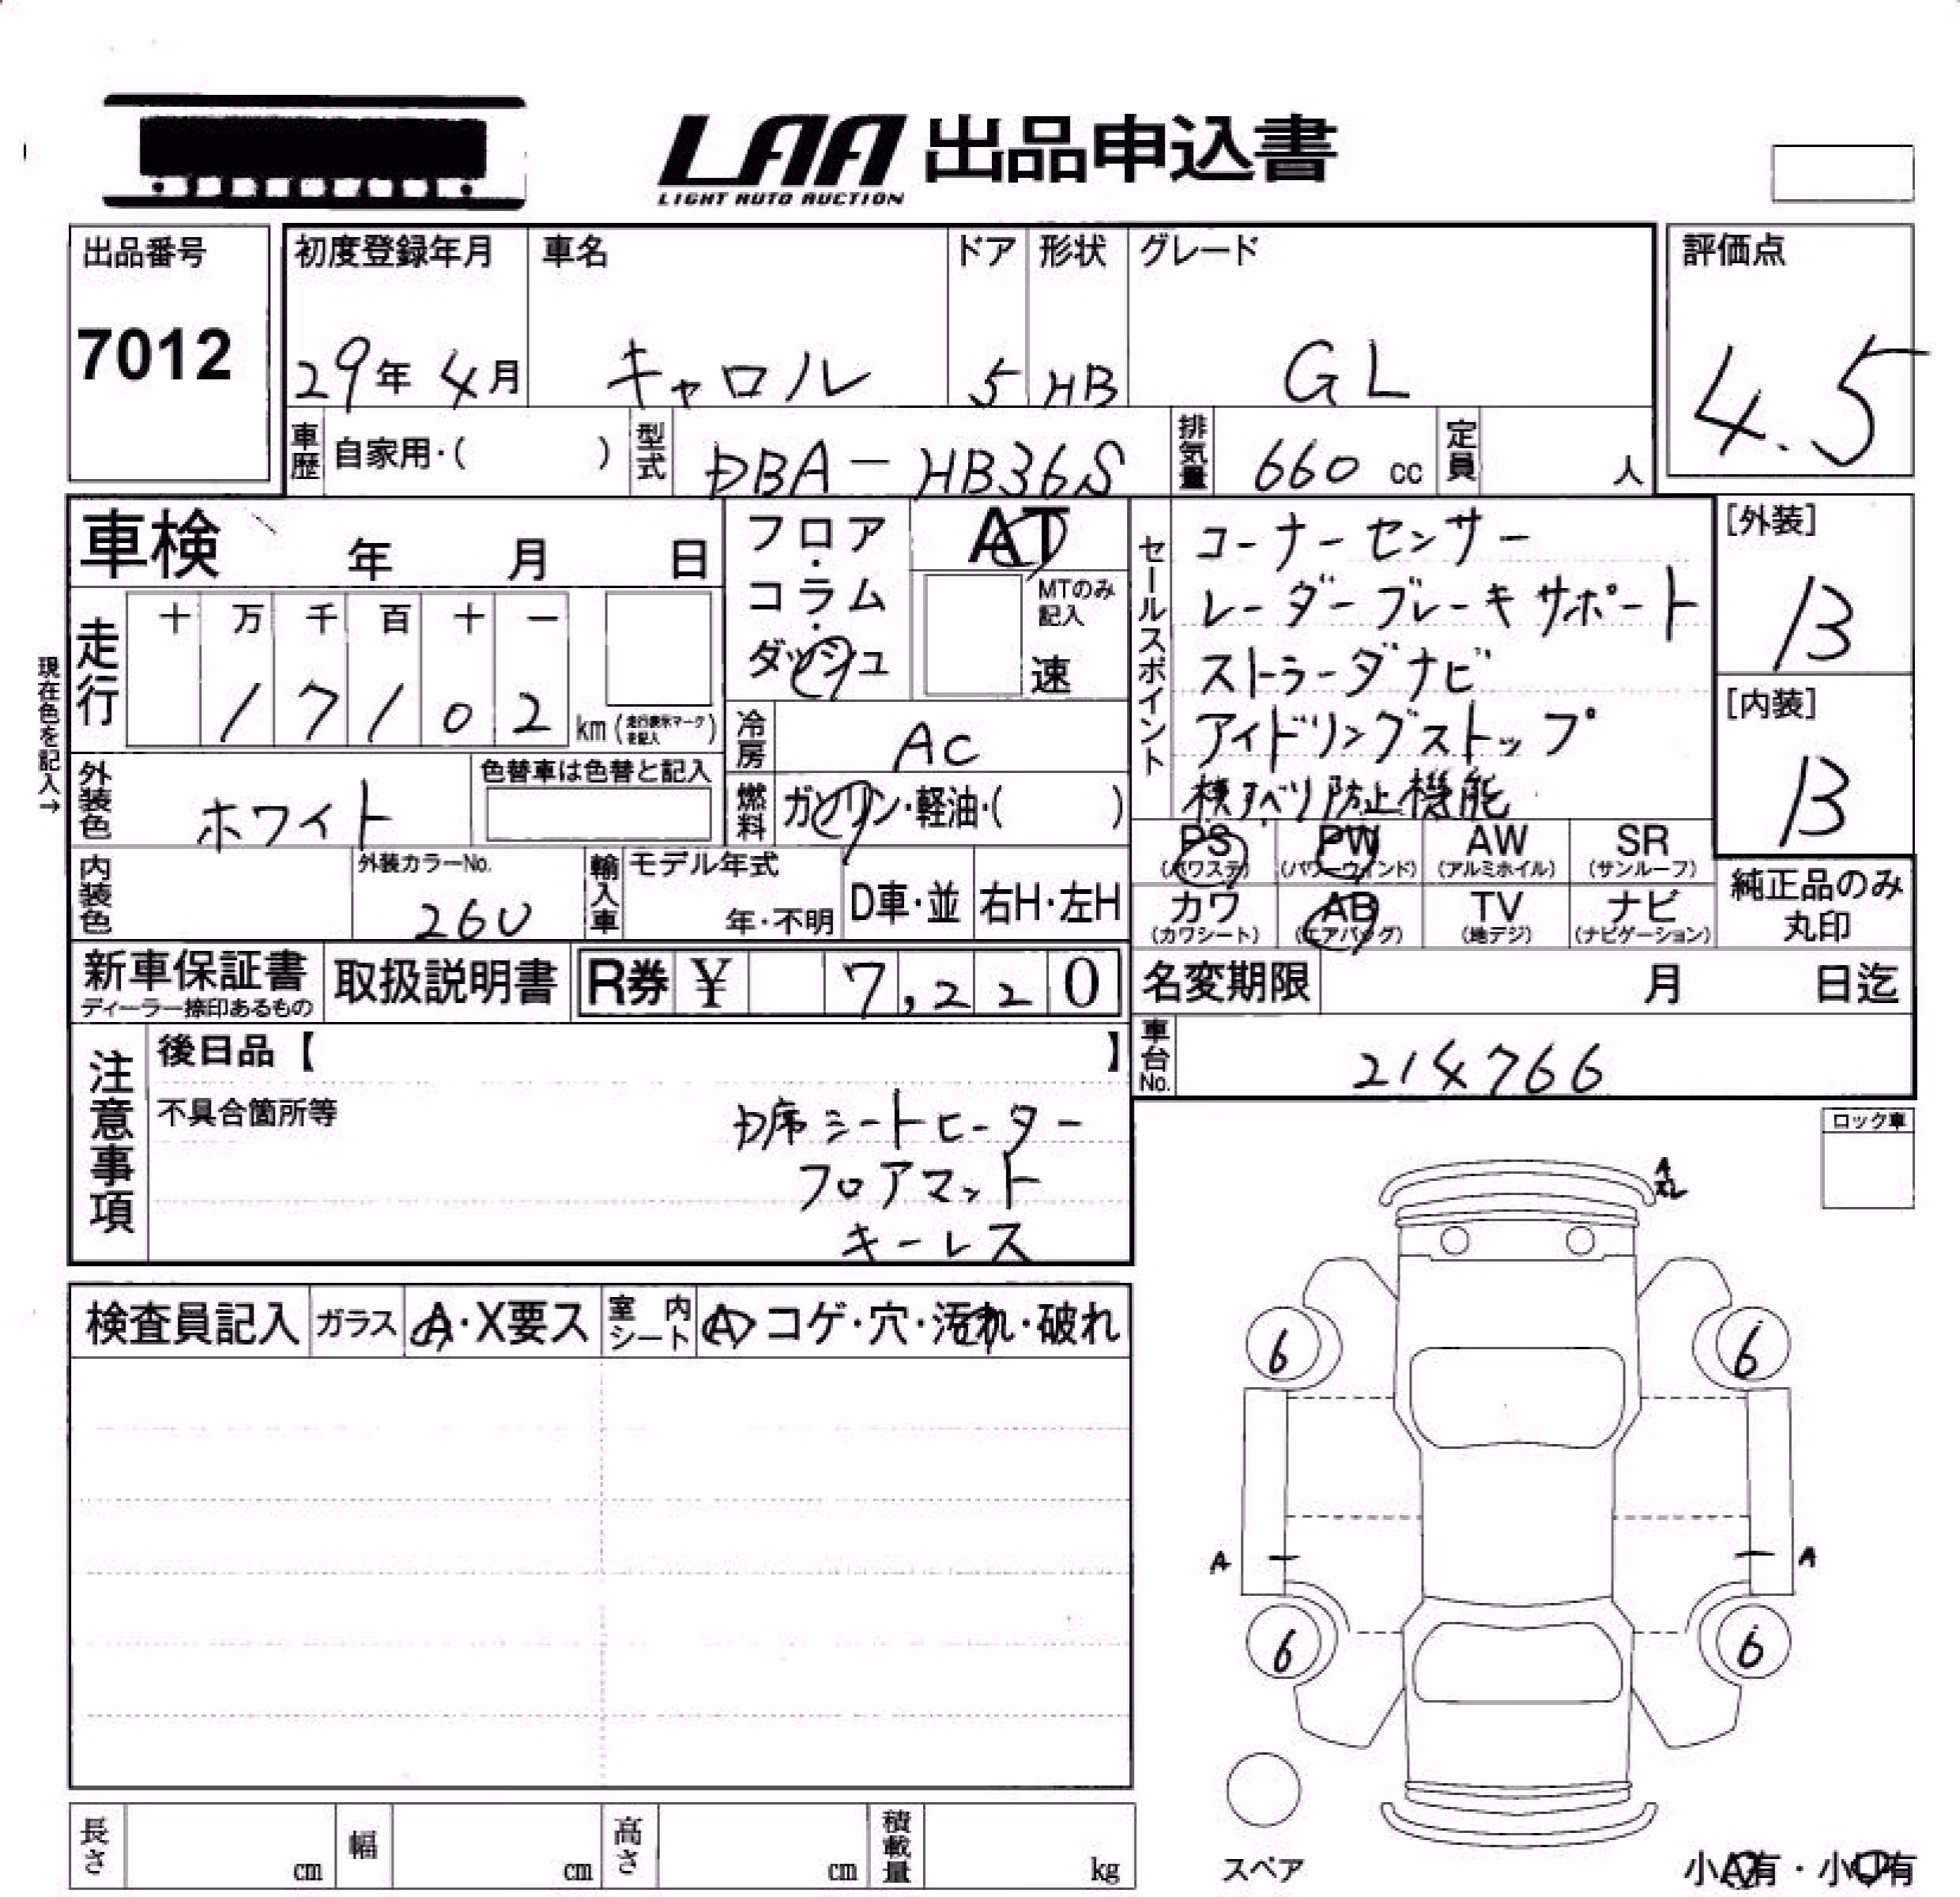 LAA 出品申込書
LIGHT AUTO AUCTION
出品番号
7012
初度登録年月
29年 4月
車名
キャロル
ドア
5
形状
HB
グレード
GL
評価点
4.5
車歴 自家用・( )
型式 DBA-HB36S
排気量 660 cc
定員 人
車検 年 月 日
フロア・コラム・ダッシュ
AT
MTのみ記入
速
現在色を記入→
走行
十 万 千 百 十 一
1 7 1 0 2 km (走行表示マークを記入)
冷房 AC
燃料 ガソリン・軽油・( )
外装色 ホワイト
色替車は色替と記入
内装色
外装カラーNo.
26U
輸入車
モデル年式
年・不明
D車・並
右H・左H
セールスポイント
コーナーセンサー
レーダーブレーキサポート
ストラーダナビ
アイドリングストップ
横スベリ防止機能
[外装]
B
[内装]
B
PS (パワステ)
PW (パワーウィンド)
AW (アルミホイル)
SR (サンルーフ)
カワ (カワシート)
AB (エアバッグ)
TV (地デジ)
ナビ (ナビゲーション)
純正品のみ丸印
新車保証書
ディーラー捺印あるもの
取扱説明書
R券 ¥ 7,220
名変期限 月 日迄
車台No. 214766
注意事項
後日品【 】
不具合箇所等
D席シートヒーター
フロアマット
キーレス
ロック車
検査員記入
ガラス A・X要ス
室内シート A コゲ・穴・汚れ・破れ
A
6 6
A A
6 6
スペア
小A有・小U有
長さ cm
幅 cm
高さ cm
積載量 kg